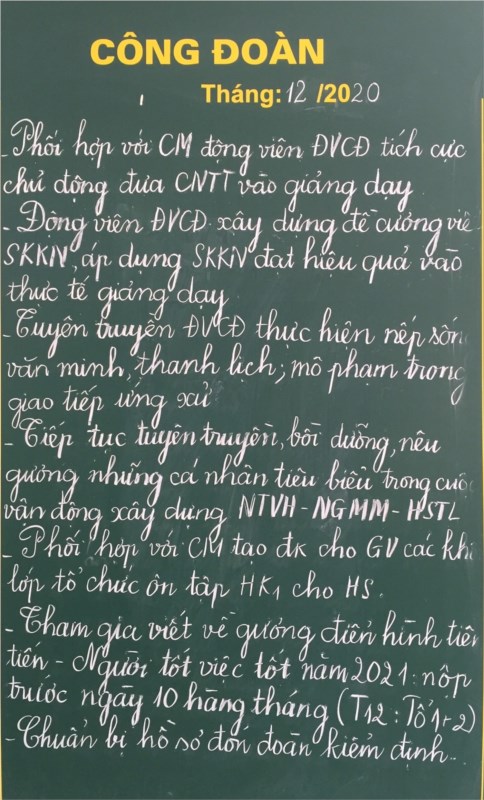 CÔNG ĐOÀN
Tháng: 12 /2020
- Phối hợp với CM động viên ĐVCĐ tích cực
chủ động đưa CNTT vào giảng dạy
- Động viên ĐVCĐ xây dựng đề cương viế
SKKN, áp dụng SKKN đạt hiệu quả vào
thực tế giảng dạy
- Tuyên truyền ĐVCĐ thực hiện nếp sốn
văn minh, thanh lịch; mô phạm trong
giao tiếp ứng xử
- Tiếp tục tuyên truyền, bồi dưỡng, nêu
gương những cá nhân tiêu biểu trong cuộc
vận động xây dựng NTVH - NGMM - HSTL
- Phối hợp với CM tạo đk cho GV các khố
lớp tổ chức ôn tập HK1 cho HS.
- Tham gia viết về gương điển hình tiên
tiến - Người tốt việc tốt năm 2021: nộp
trước ngày 10 hàng tháng (T12: Tổ 1+2)
- Chuẩn bị hồ sơ đón đoàn kiểm định...